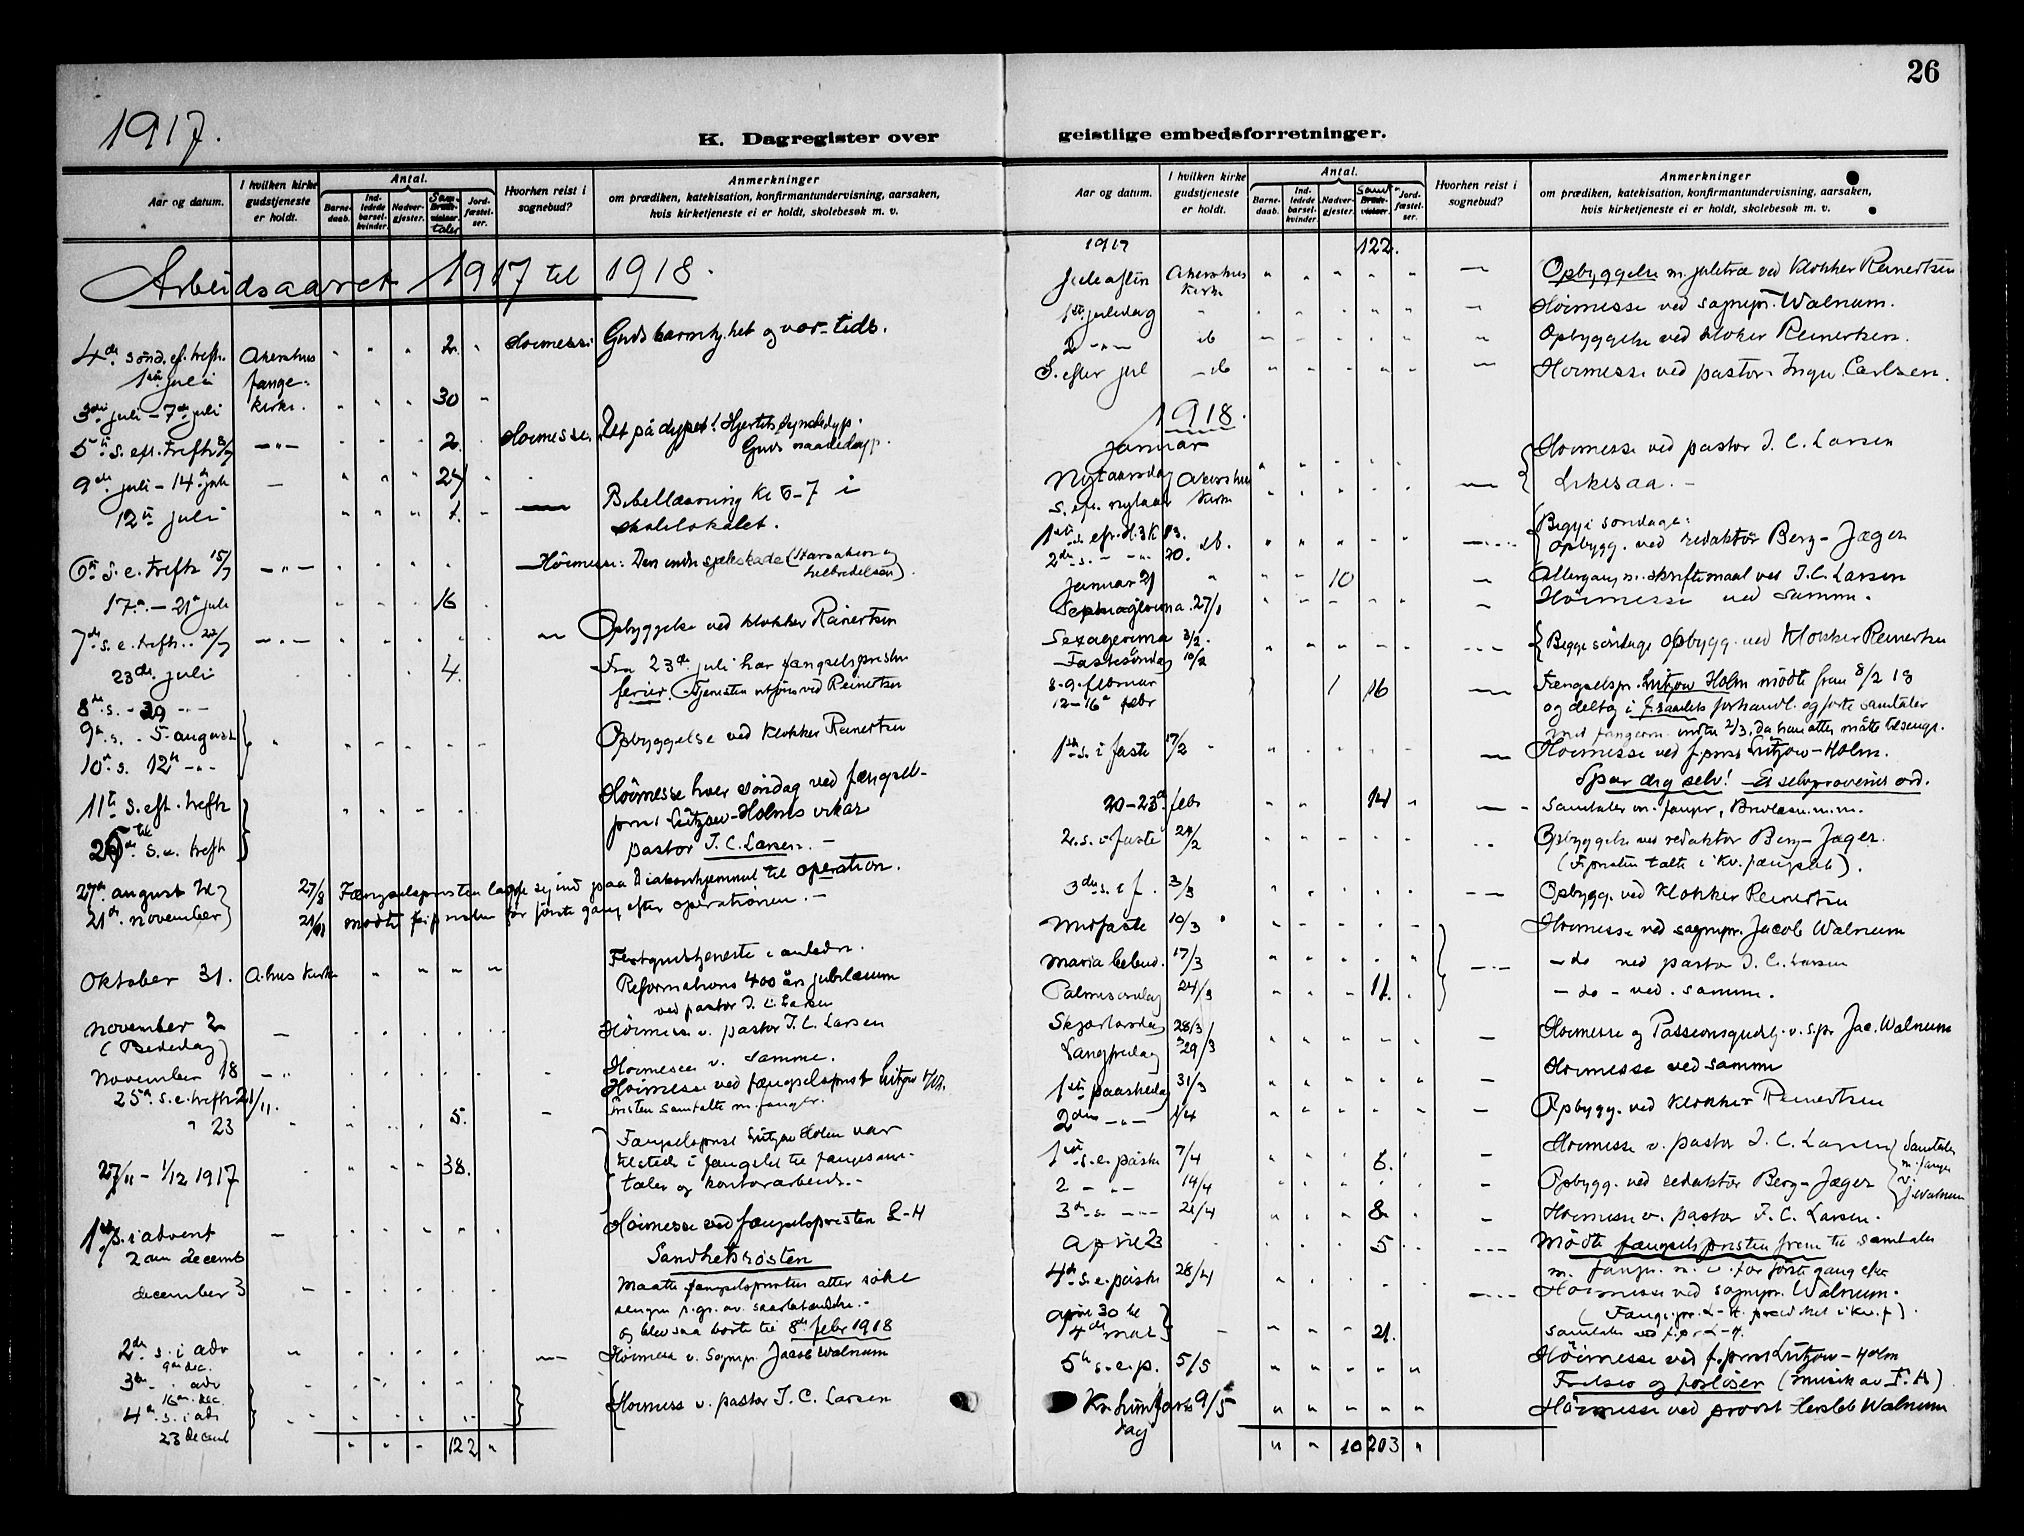 26
1917.
K. Dagregister over
geistlige embedsforretninger.
Aar og datum.
I hvilken kirke gudstjeneste er holdt.
Antal.
Barnedaab.
Indledede barselkvinder.
Nadvergjester.
Samtaler
Jordfæstelser.
Hvorhen reist i sognebud?
Anmerkninger
om prædiken, katekisation, konfirmantundervisning, aarsaken,
hvis kirketjeneste ei er holdt, skolebesøk m. v.
Arbeidsaaret 1917 til 1918.
4de sønd. ef. trefh. Akershus " " " 2. " Høimesse: Guds barmhj.het og vor tids.
1ste juli fange-
3die juli - 7de juli kirke. " " " 30 "
5te s. eft. trefh 8/7 -"- " " " 2. Høimesse: Det på dypet! Hjertets synddyp.
Guds naadedyp.
9de juli - 14de juli - " " " 24 "
12te juli " " " 1. " Bibellæsning Kl 6-7 i
skolelokalet.
6te s. e. trefh 15/7 -"- Høimesse: Den indre sjæleskade (Aarsaken og
helbredelsen).
17de - 21de juli " " 16
7de s. e. trefh. 22/7 -"- Opbyggelse ved klokker Reinertsen
23de juli 4. Fra 23de juli har fængselspresten
ferier. Tjenesten utføres ved Reinertsen
8de s. - 29 -"-
9de s. - 5. august Opbyggelse ved klokker Reinertsen
10de s. 12te -"-
11te s. eft. trefh Høimesse hver søndag ved fængsels-
til prest Lützow-Holms vikar
25de s. e. trefh pastor J. C. Larsen. -
27de august til 27/8 Fængselspresten lagde sig ind paa Diakonhjemmet til operation.
21de november 21/11 mødte f.presten for første gang efter operationen. -
Oktober 31. A.hus kirke " " " " Festgudstjeneste i anledn.
Reformations 400 års jubilæum
ved pastor J. C. Larsen
November 2 - Høimesse v. pastor J. C. Larsen
(Bededag)
November 18 -"- Høimesse v. samme.
25de s. e. trefh 21/11. Høimesse ved fængselsprest Lützow Holm.
" 23 5. - Presten samtalte m. fanger.
27/11 - 1/12 1917 " " " 38. Fængselsprest Lützow Holm var
tilstede i fængslet til fangesam-
taler og kontorarbeide. -
1ste s. i advent - Høimesse ved fængselspresten L-H
2den decemb Sandhetsrøsten
december 3 Maatte fængselspresten atter søke
sengen p. gr. av
og blev saa borte til 8de febr 1918
2de s. i adv Høimesse v. Sognepr. Jacob Walnum
9de dec.
3die - i adv
16de dec. Høimesse v. pastor J. C. Larsen
4de s. i adv
23 decemb
" " " 122 "
1917 122.
Juleaften Akershus kirke " " " " " - Opbyggelse m. juletræ ved Klokker Reinertsen
1ste juledag " Høimesse ved sognepr. Walnum.
2 -"- do Opbyggelse ved klokker Reinertsen.
S. efter jul - do Høimesse ved pastor Ingv. Carlsen.
1918.
Januar
Nytaarsdag Akershus kirke Høimesse ved pastor J. C. Larsen
S. eft. nytaar Likesaa. -
1ste s. eft. H. 3 K 13. do. Begge søndage:
2den s. - " - " 20. Opbygg. ved redaktør Berg-Jæger
Januar 21 " " " 10 Altergang m. skriftemaal ved J. C. Larsen
Septuagesima. 27/1 Høimesse ved samme.
Sexagesima 3/2. Begge søndage opbygg. ved Klokker Reinertsen
Fastesøndag 10/2
8-9. februar 1 16 Fængselspr. Lützow Holm mødte frem 8/2 18
12-16de febr og deltog i forhandl. og førte samtaler
med fangerne indtil 2/3, da han atter måtte tilsengs.
1ste s. i faste 17/2 " Høimesse ved f.prest Lützow-Holm.
Spar dig selv! - Et selvprøvelses ord.
20-23de febr 14 Samtaler m. fanger,
2. s. i faste 24/2 Opbyggelse ved redaktør Berg-Jæger.
(F.presten talte i Kv. fængslet).
3die s. i f. 3/3 Opbygg. ved Klokker Reinertsen
Midfaste 10/3 Høimesse ved sognepr. Jacob Walnum
Maria bebud. 17/3 - do ved pastor J. C. Larsen
Palmesøndag 24/3 11. - do - ved samme.
Skjærtorsdag 28/3 Høimesse og Passionsgudtj. v. s.pr. Jac. Walnum
Langfredag 29/3
1ste paaskedag 31/3 Høimesse ved samme
2den -"- 1/4 Opbygg. ved Klokker Reinertsen
1ste s. e. påske 7/4 6. Høimesse v. pastor J. C. Larsen
Samtaler m. fanger v. J. Walnum
2 - " - 14/4 Opbygg. ved redaktør Berg-Jæger
3de s. -"- 21/4 8 Høimesse v. pastor J. C. Larsen.
April 23 5 Mødte fængselspresten frem til samtaler
m. fanger. m. v. for første gang efter
4de s. e. påske 28/4 Høimesse ved sognepr. Walnum.
(Fængs.pr. L-H. prædiket i kv.f).
April 30 til
4de mai 21. Samtaler ved f.pr L-H.
5te s. e. p. 5/5 Høimesse ved f.prest Lützow-Holm
Frelser og forløser (musik av F. A)
Kr. himfarts 9/5 Høimesse ved provst Hersleb Walnum
dag
" " 10 203 "